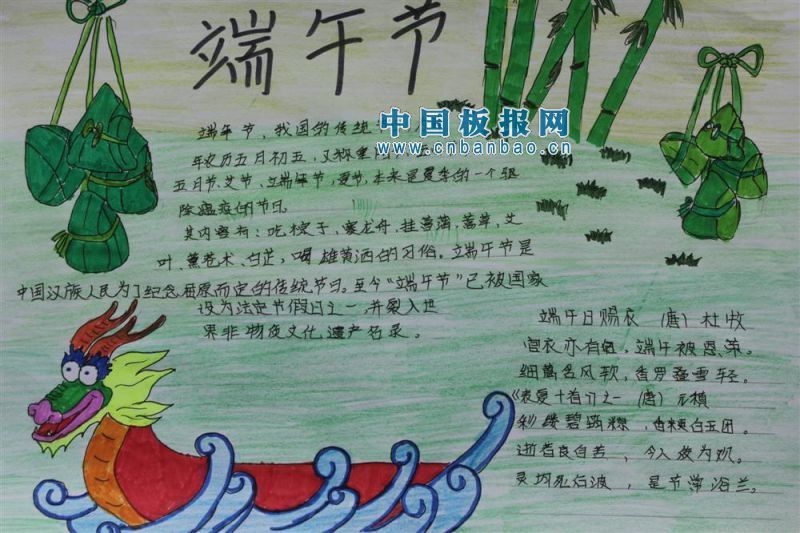 端午节
中国板报网
www.cnbanbao.cn
端午节，我国的传统
年农历五月初五，又称重
五月节、艾节、端午节，夏节，本来是夏季的一个驱
除瘟疫的节日
其内容有：吃粽子，赛龙舟，挂菖蒲、蒿草、艾
叶，薰苍术、白芷，喝雄黄酒的习俗。端午节是
中国汉族人民为了纪念屈原而定的传统节日。至今“端午节”已被国家
设为法定节假日之一，并列入世
界非物质文化遗产名录。
端午日赐衣 （唐） 杜
宫衣亦有名，端午被恩荣。
细葛含风软，香罗叠雪轻。
《表夏十首 之一 （唐） 元稹
彩缕碧筠粽，香粳白玉团。
逝者良自苦，今人反为欢。
灵均死 波，是节 浴兰。